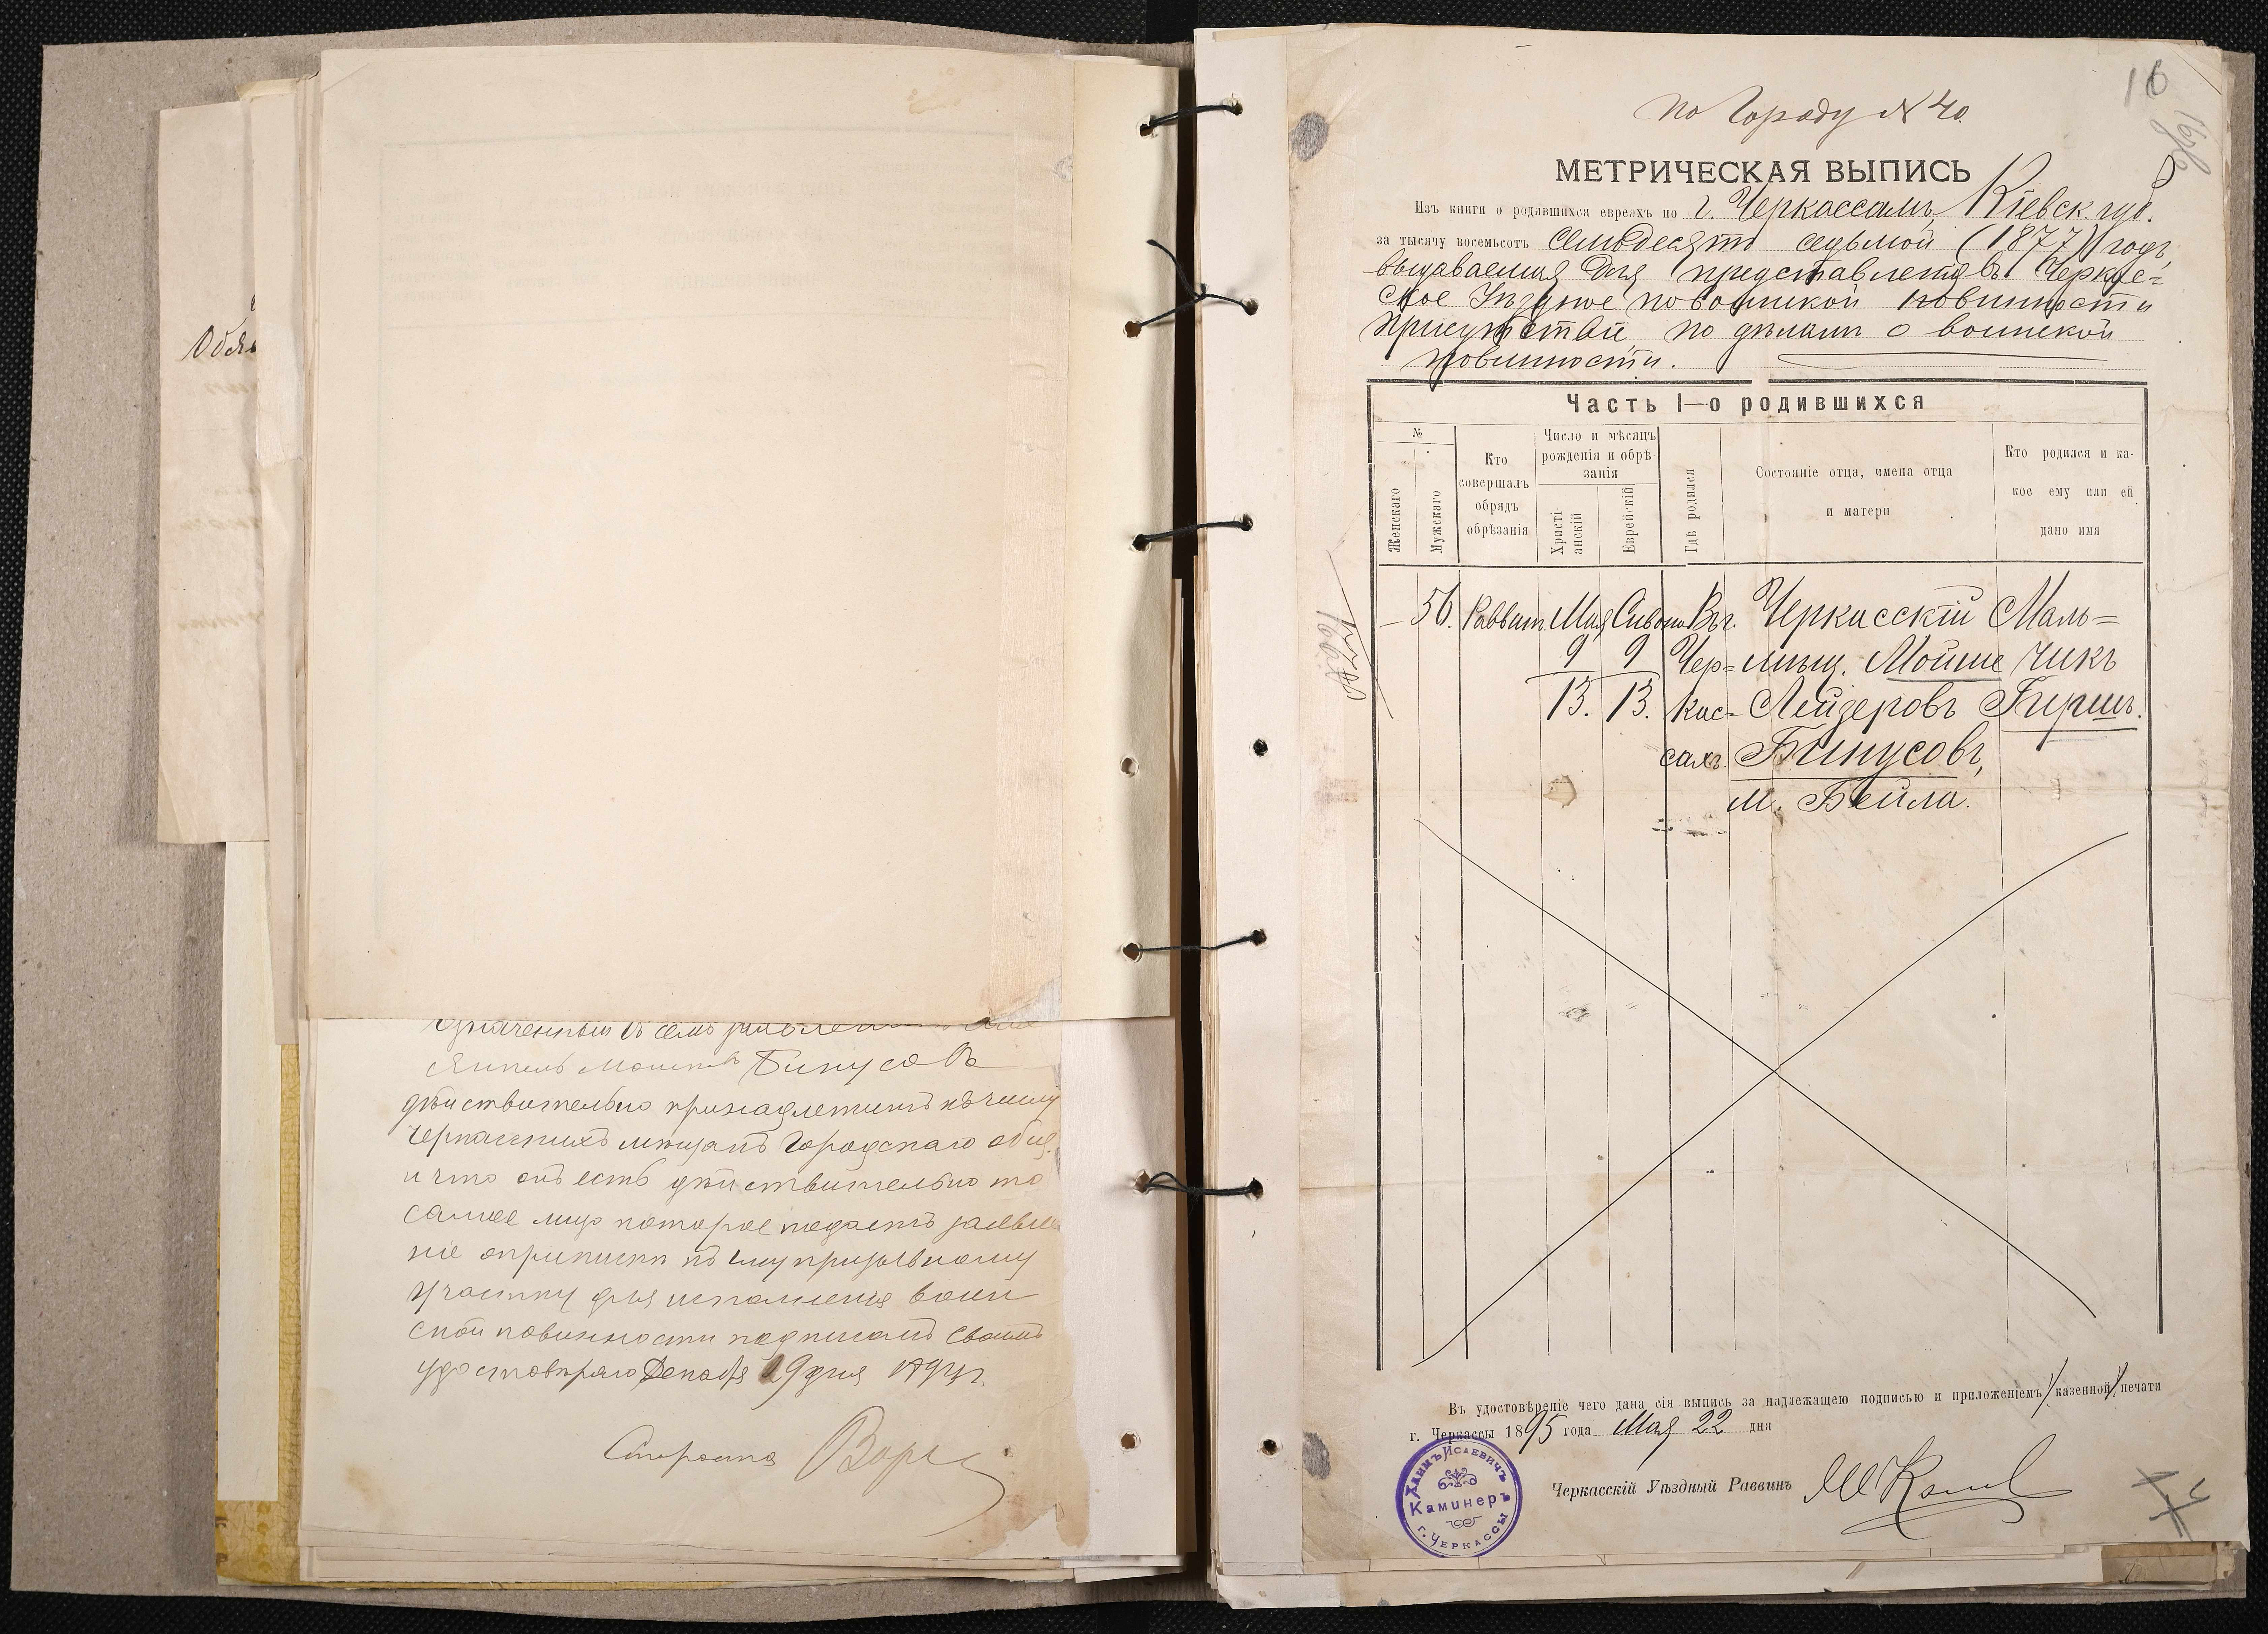 Объ
Означенный въ семъ
Мошковъ Бинусовъ
действительно принадлежитъ къ числу
Черкасскихъ мѣщанъ Городскаго общ.
и что онъ есть дѣйствительно то
самое лицо которое подаетъ заявле
ніе о припискѣ къ призывному
участку для исполненія воин
ской повинности подписомъ своимъ
удостовѣряю Декабря 19 дня
Староста
16
По Городу № 40.
МЕТРИЧЕСКАЯ ВЫПИСЬ
Изъ книги о родившихся евреяхъ по г. Черкассамъ, Кіевск. губ.
за тысячу восемьсотъ семьдесятъ седьмой (1877) годъ,
выдаваемая для представленія въ Черкас=
ское Уѣздное по воинской повинности
присутствіе, по дѣламъ о воинской
повинности.
Часть I—о родившихся
№
Женскаго
Мужскаго
Кто совершалъ обрядъ обрѣзанія
Число и мѣсяцъ рожденія и обрѣзанія
Христіанскій
Еврейскій
Гдѣ родился
Состояніе отца, имена отца и матери
Кто родился и какое ему или ей дано имя
— 56. Раввин. Мая Сивона Въ г. Черкасскій Маль=
9 9 Чер= мѣщ. Мойше чикъ
13. 13. кас- Лейзеровъ Гиршъ.
сахъ. Бинусовъ,
м. Бейла.
Въ удостовѣреніе чего дана сія выпись за надлежащею подписью и приложеніемъ казенной печати
г. Черкассы 1895 года Мая 22 дня
Черкасскій Уѣздный Раввинъ
Хаимъ Исаевичъ
Каминеръ
г. Черкассы